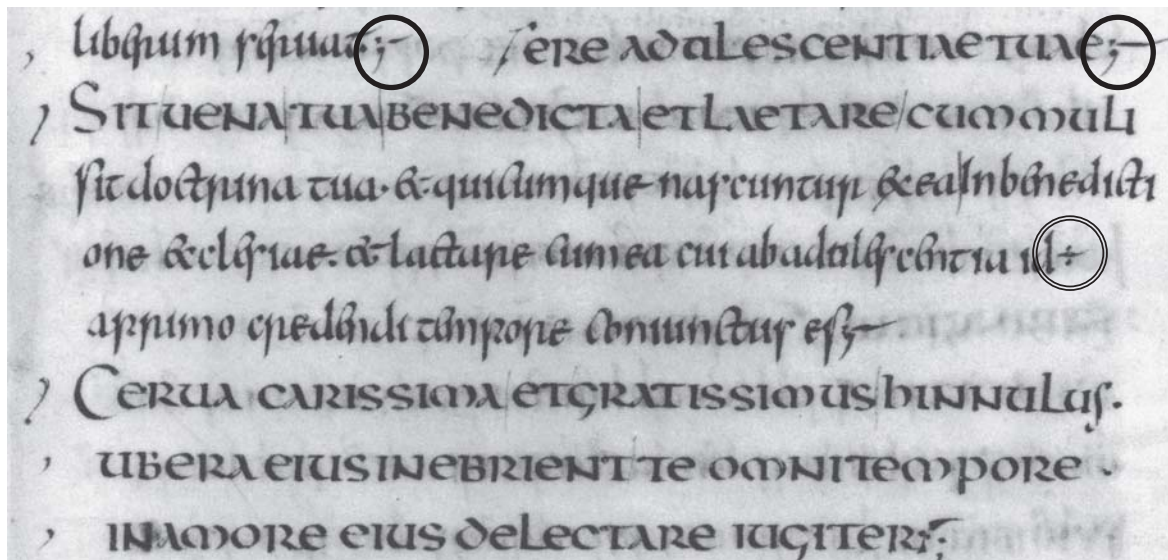 liberum seruat;— /ere adulescentiae tuae;—
Sit uena tua benedicta et laetare cum muli
sit doctrina tua · & quicumque nascuntur ex ea In benedicti
one ecclesiae. & laetare cum ea cui ab adulescentia id÷
a primo credendi tempore coniunctus es;—
Cerua carissima et gratissimus hinnulus.
ubera eius inebrient te omni tempore
in amore eius delectare iugiter;